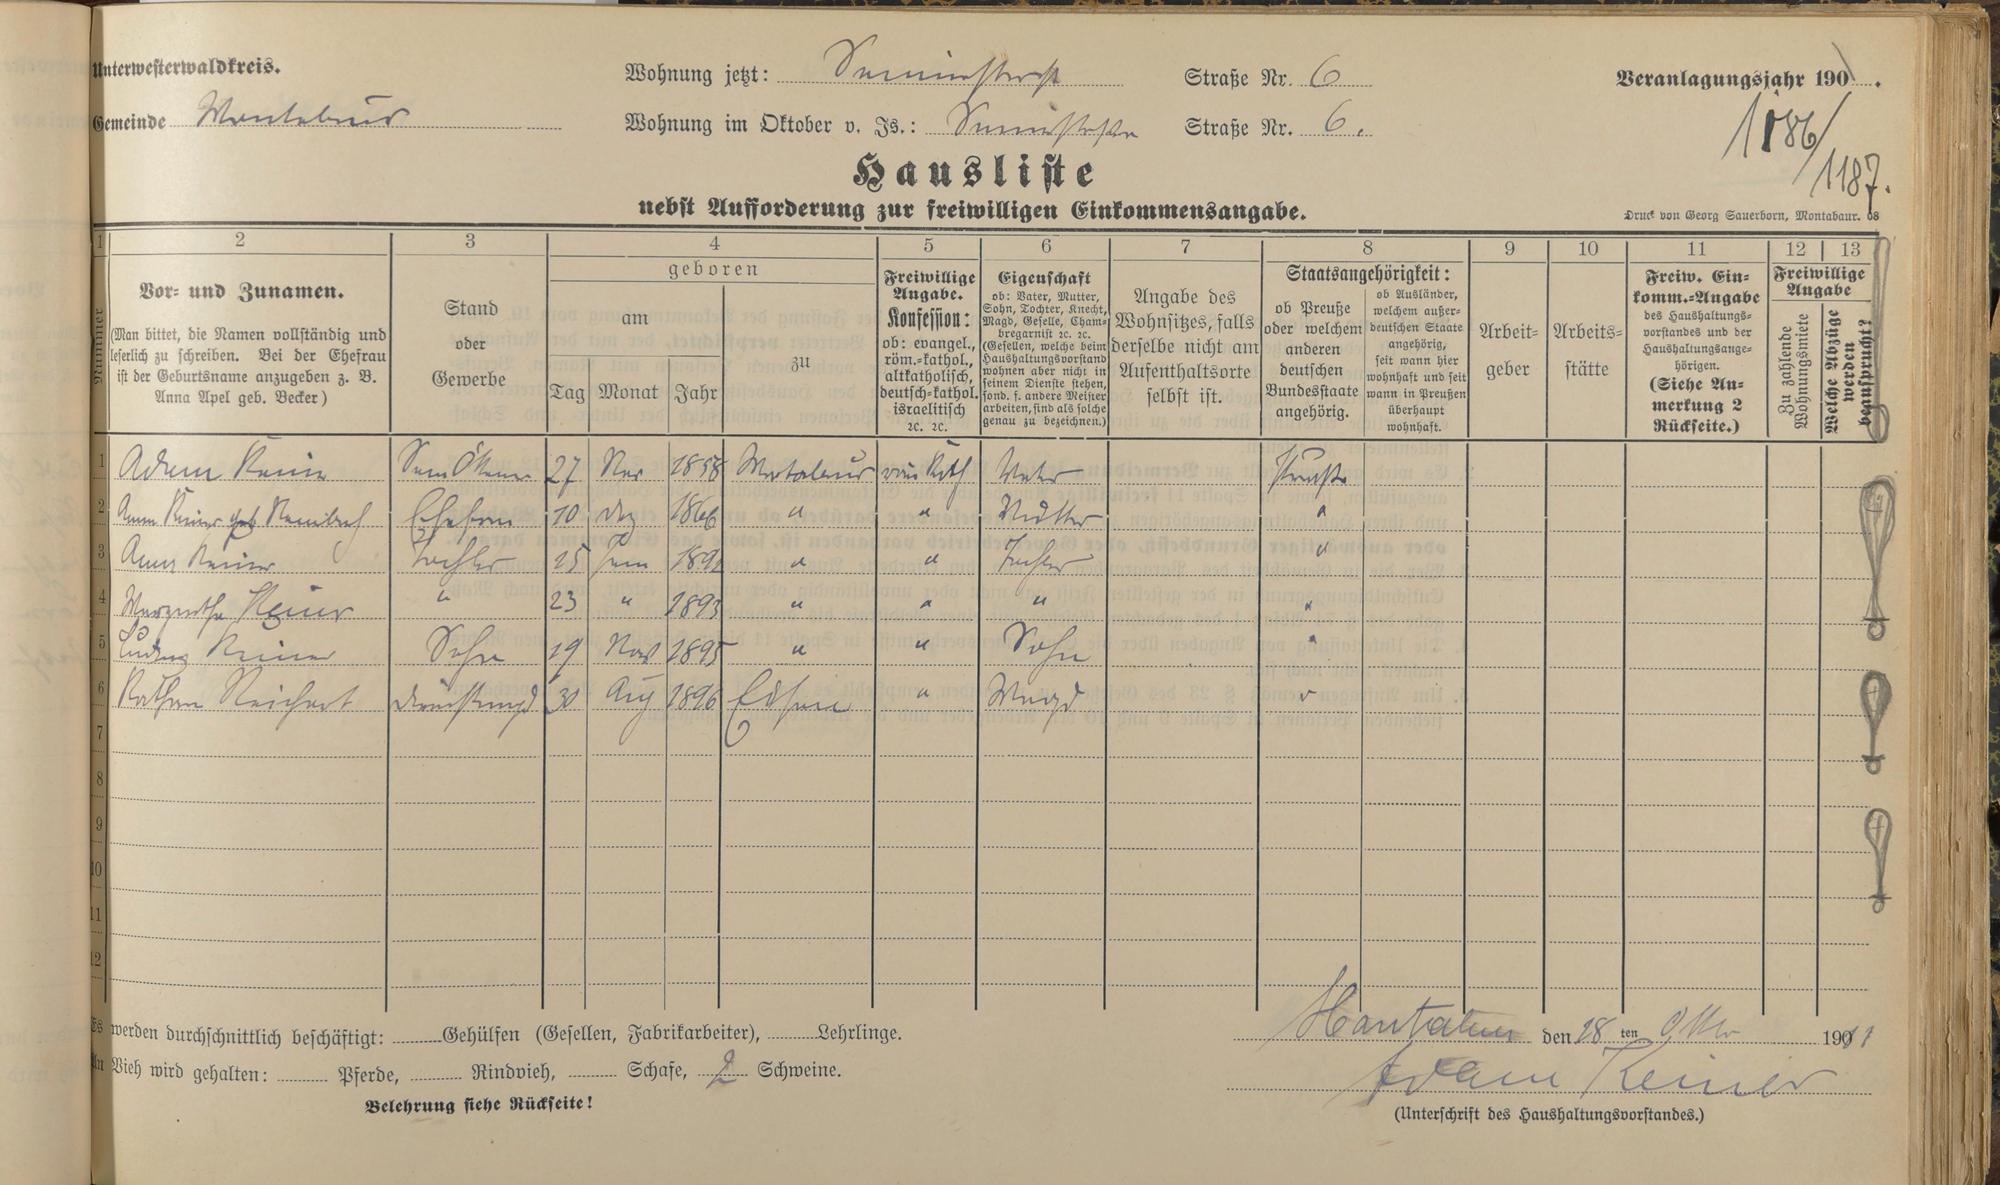 Unterwesterwaldkreis.
Wohnung jetzt: Straße Nr. 6
Veranlagungsjahr 190.
Gemeinde Montabaur
Wohnung im Oktober v. Js.: Straße Nr. 6.
1186/
1187.
Hausliste
nebst Aufforderung zur freiwilligen Einkommensangabe.
Druck von Georg Sauerborn, Montabaur. 08
1 2 3 4 5 6 7 8 9 10 11 12 13
Nummer
Vor- und Zunamen.
(Man bittet, die Namen vollständig und
leserlich zu schreiben. Bei der Ehefrau
ist der Geburtsname anzugeben z. B.
Anna Apel geb. Becker)
Stand
oder
Gewerbe
geboren
am
Tag Monat Jahr
zu
Freiwillige
Angabe.
Konfession:
ob: evangel.,
röm.-kathol.,
altkatholisch,
deutsch-kathol.
israelitisch
2c. 2c.
Eigenschaft
ob: Vater, Mutter,
Sohn, Tochter, Knecht,
Magd, Geselle, Cham-
bregarnist 2c. 2c.
(Gesellen, welche beim
Haushaltungsvorstand
wohnen aber nicht in
seinem Dienste stehen,
sond. f. andere Meister
arbeiten, sind als solche
genau zu bezeichnen.)
Angabe des
Wohnsitzes, falls
derselbe nicht am
Aufenthaltsorte
selbst ist.
Staatsangehörigkeit:
ob Preuße
oder welchem
anderen
deutschen
Bundesstaate
angehörig.
ob Ausländer,
welchem außer-
deutschen Staate
angehörig,
seit wann hier
wohnhaft und seit
wann in Preußen
überhaupt
wohnhaft.
Arbeit-
geber
Arbeits-
stätte
Freiw. Ein-
komm.-Angabe
des Haushaltungs-
vorstandes und der
Haushaltungsange-
hörigen.
(Siehe An-
merkung 2
Rückseite.)
Freiwillige
Angabe
Zu zahlende
Wohnungsmiete
Welche Abzüge
werden
beansprucht?
1 Adam Keiner 27 Nov 1858 Montabaur röm Kath Vater Preuße
2 Anna Keiner geb Ehefrau 10 Dez 1866 " " Mutter "
3 Anna Keiner Tochter 25 Juni 1892 " " Tochter "
4 Margretha Keiner " 23 " 1893 " " " "
5 Ludwig Keiner Sohn 19 Nov 1895 " " Sohn "
6 Kathar Reichert Dienstmagd 30 Aug 1896 " Magd "
7
8
9
10
11
12
Es werden durchschnittlich beschäftigt: Gehülfen (Gesellen, Fabrikarbeiter), Lehrlinge.
Montabaur den 28 ten Oktbr 1911
An Vieh wird gehalten: Pferde, Rindvieh, Schafe, 2 Schweine.
Adam Keiner
Belehrung siehe Rückseite!
(Unterschrift des Haushaltungsvorstandes.)